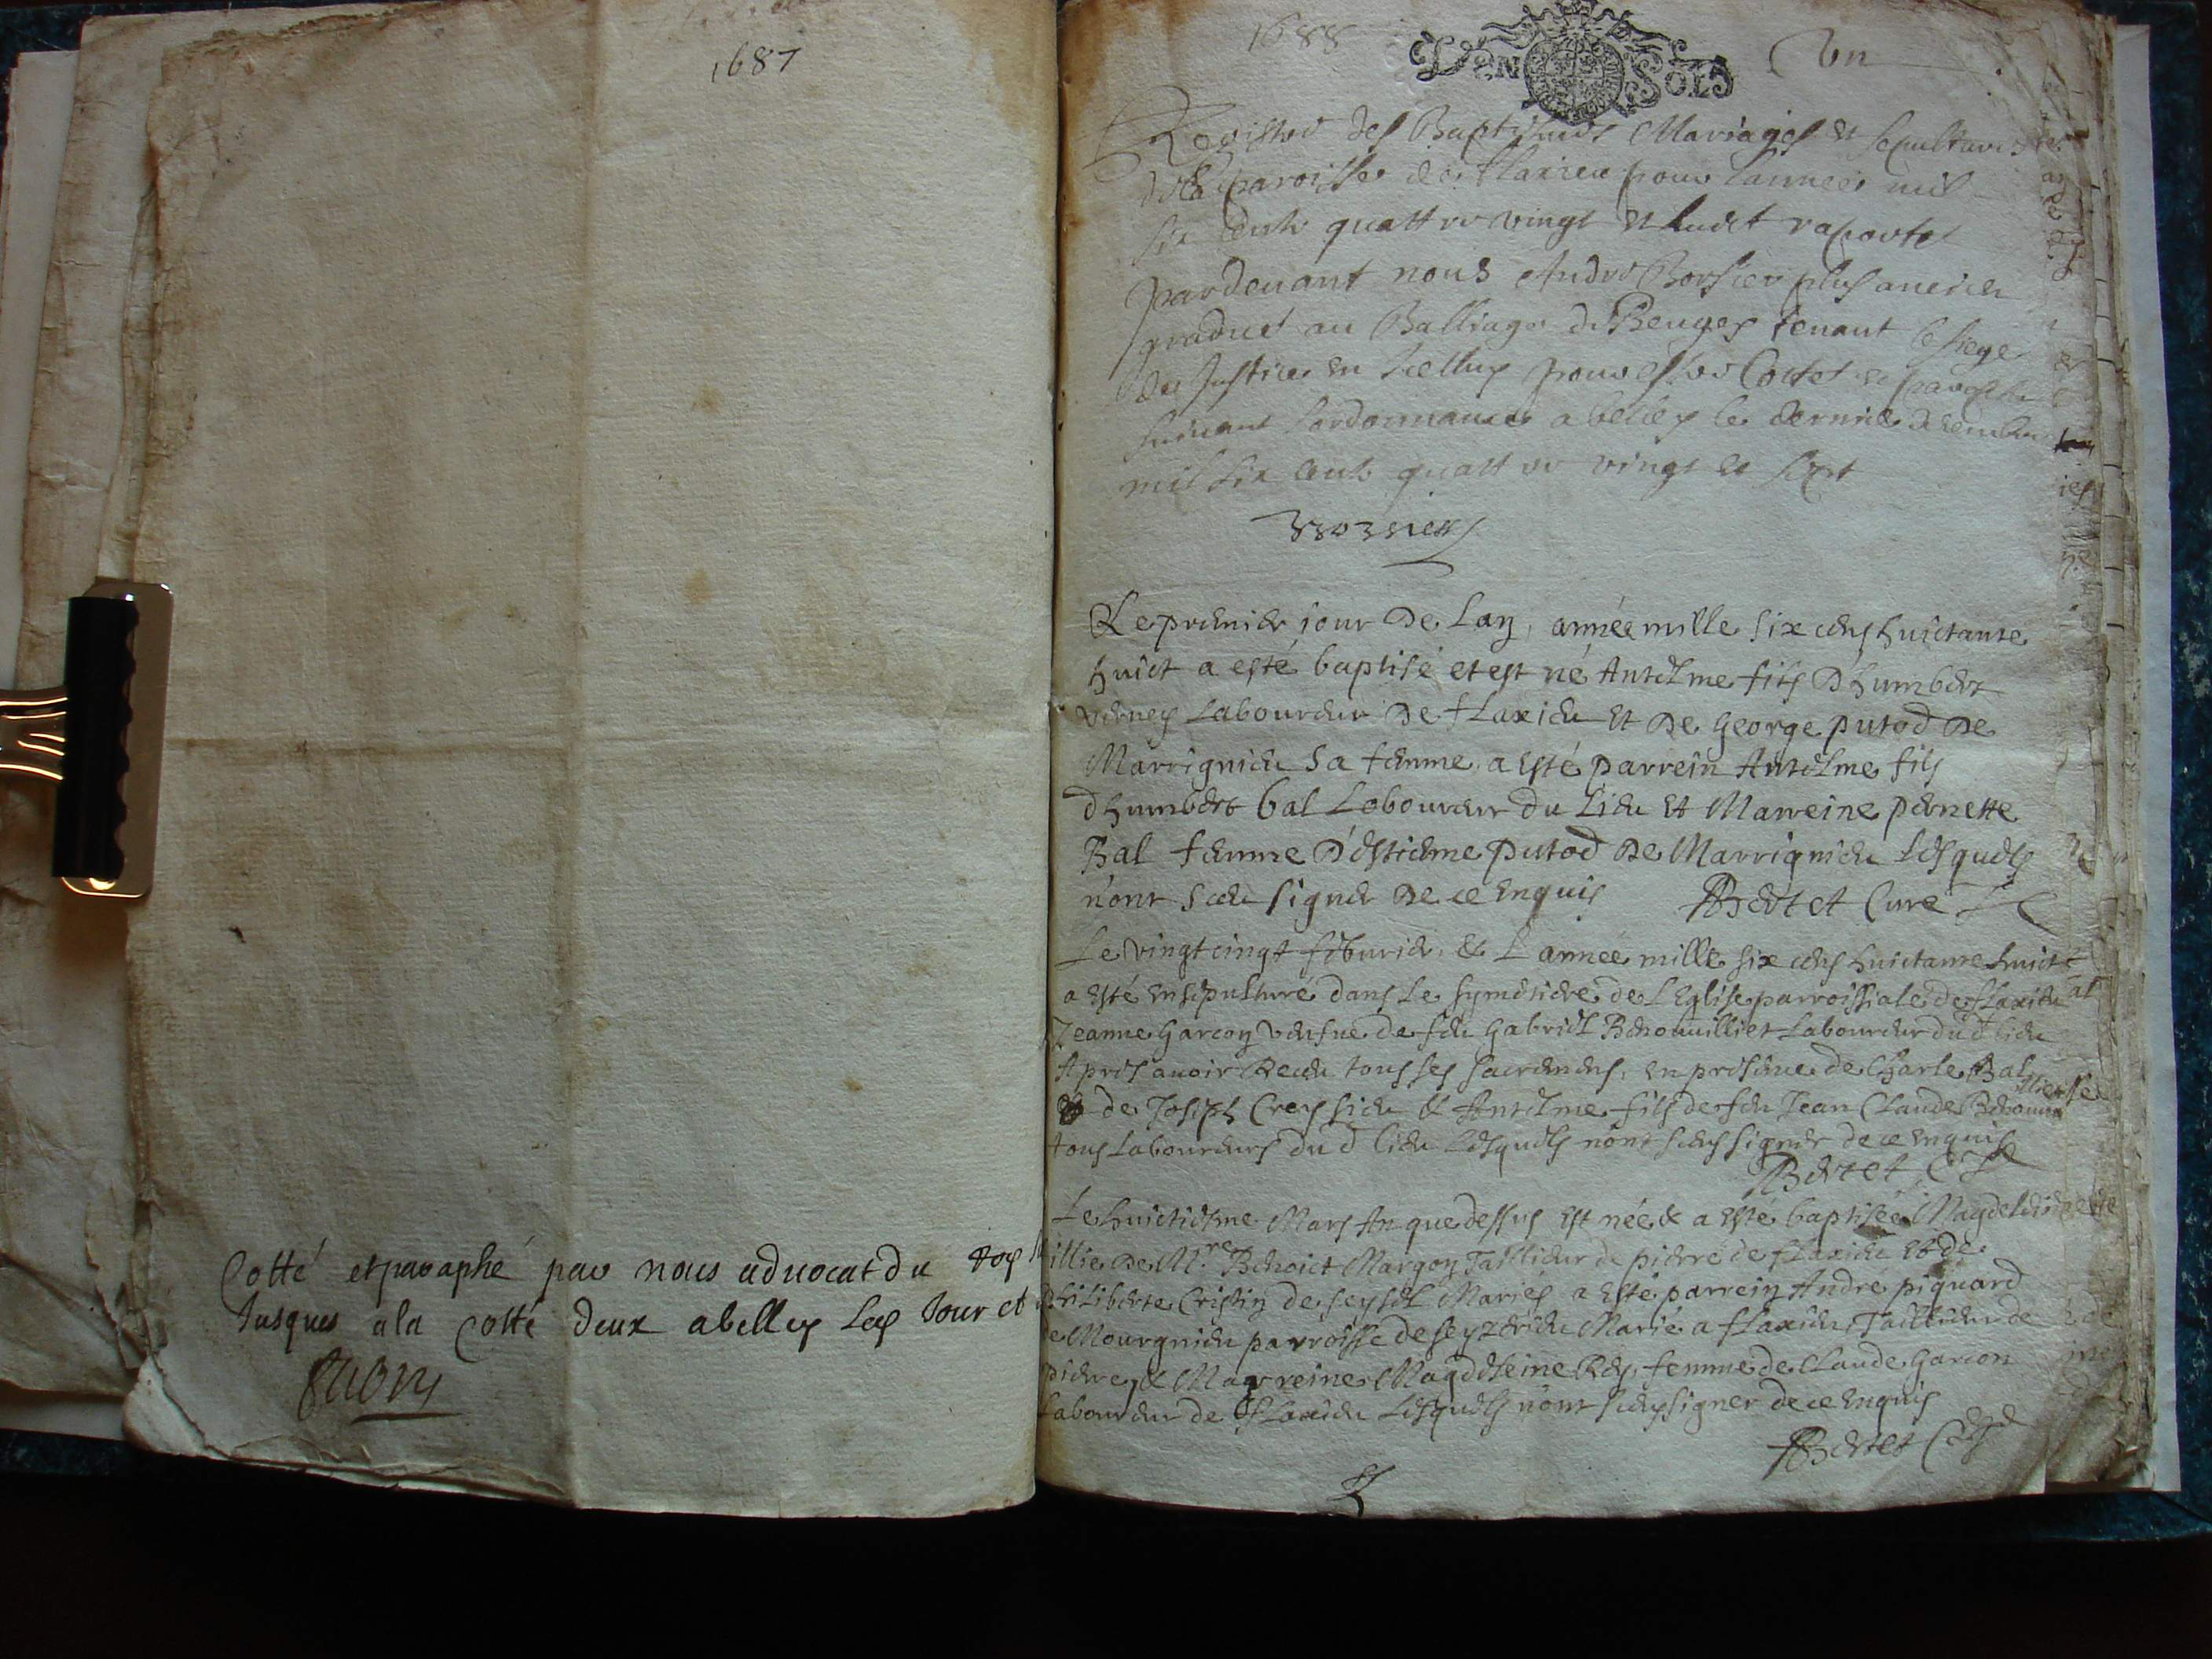 1687
Cotté et paraphé par nous advocat du Roy
Jusques a la Cotte deux a belley Les Jour et
1688
DEN SOLS
Un
Registre des Baptesmes Mariages et sepultures
de la paroisse de flaxieu pour lannee mil
six cents quattre vingt et huict raporte
pardevant nous Andre Borsier plus ancien
gradué au Balliage de Beugey tenant le siege
de Justice en Icelluy pour estre Cottet et paraphe
suivant Lordonnance a belley le dernier decembre
mil six cents quattre vingt et sept
Le premier jour De Lan, année mille six cens huictante
huict a esté baptisé et est né Antelme fils D'humbert
verney Laboureur De flaxieu et De george putod De
Marrignieu sa femme, a esté parrein Antelme fils
d'humbert bal Laboureur du Lieu et Marreine pernette
Bal femme D'estienne Putod De Marrignieu Lesquels
n'ont sceu signer De ce enquis Bertet Curé
Le vingt cinqt febvrier, & L'année mille six cens huictante huict
a esté ensepulturé dans Le symetiere de L'Eglise parroissiale de flaxieu
Jeanne garcon veufve de feu gabriel Berouilliet Laboureur dud lieu
Apres avoir Receu tous ses sacremens, en presence de Charle Bal
& de Joseph Creyssieu & Antelme fils de feu Jean Claude
tous Laboureurs du d lieu Lesquels n'ont sceus signer de ce enquis
Bertet
Le huictiesme Mars An que dessus est née & a esté baptisée Magdeleine
fillie De M.re Benoict Margon Tallieur de pierre de flaxieu et de
Philiberte Cristin de seyssel Mariés a esté parrein Andre piquard
de Mourgnieu parroisse de seyzerieu Marié a flaxieu, Taillieur de
pierre, & Marreine Magdeleine Rey femme de Claude garcon
Laboureur de flaxieu Lesquels n'ont sceus signer de ce enquis
Bertet